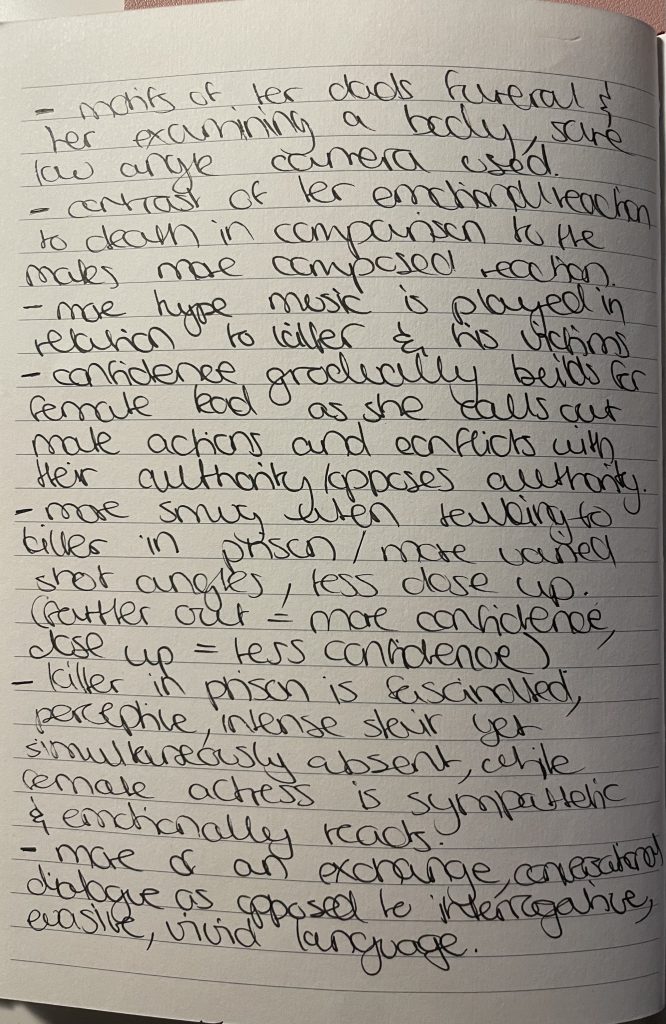 - motifs of her dads funeral &
her examining a body, same
low angle camera used.
- contrast of her emotional/reaction
to death in comparison to the
males more composed reaction.
- more hype music is played in
relation to killer & his victims
- confidence gradually beids for
female lead as she calls out
male actions and conflicts with
their authority/opposes authority.
- more smug when talking to
killer in prison/more varied
shot angles, less close up.
(farther out = more confidence,
close up = less confidence)
- killer in prison is fascinated,
perceptive, intense stair yet
simultaneously absent, while
female actress is sympathetic
& emotionally reacts.
- more of an exchange, conversational
dialogue as opposed to interrogative,
evasive, vivid language.